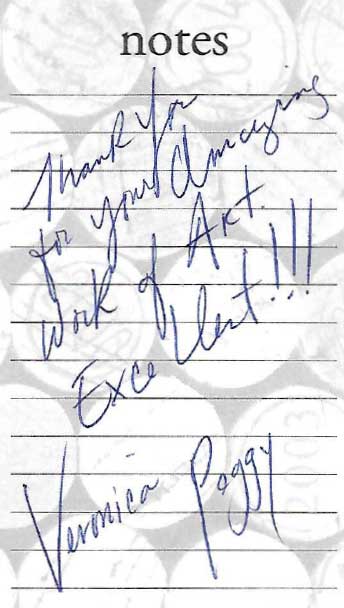 notes
Thank You
for your Amazing
Work of Art.
Excellent!!!
Veronica Peggy